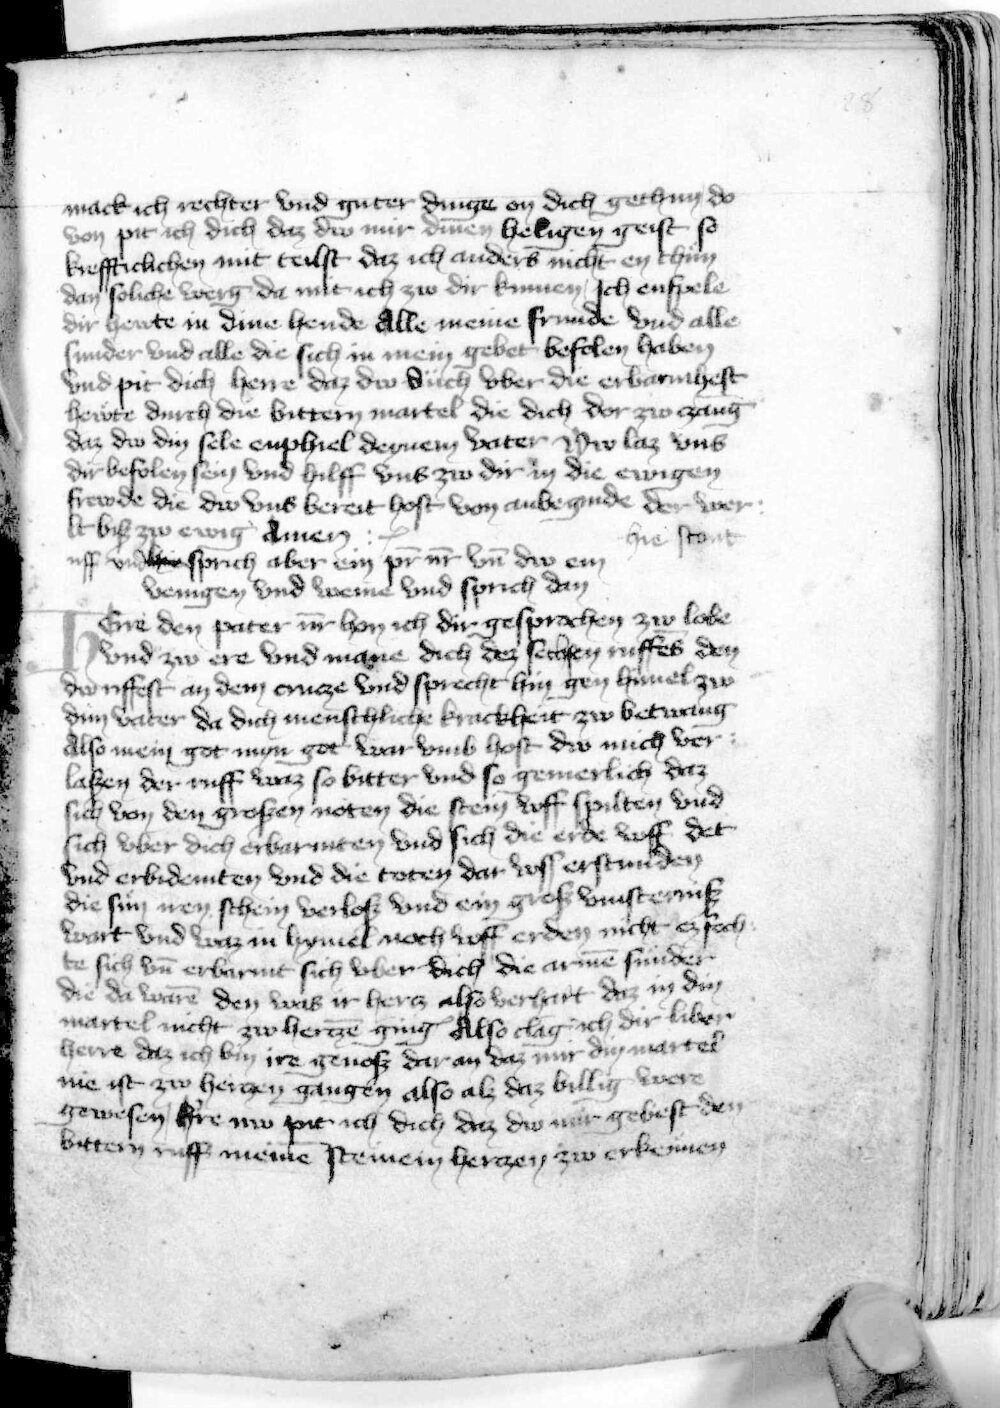 28
mack ich rechter vnd guter dinge on dich gethun do
von pit ich dich daz dw mir dinen heligen geist so
krefftliclichen mit teilst daz ich anders nicht en thün
dan soliche werg da mit ich zw dir kumen Ich enpfele
dir hewte in dine hende Alle meine frunde vnd alle
sunder vnd alle die sich in mein gebet befolen haben
vnd pit dich herre daz dw dich vber die erbarmhest
hewte durch die bittern martel die dich dor zw czwang
daz dw din sele enphiel deynem vater Nw laz vns
dir befolen sein vnd hilff vns zw dir in die ewigen
frewde die dw vns bereit host von anbeginde der wer
lt biß zw ewig Amen : hie stant
uff vnd sprich aber ein pr̄ nr̄ vn̄ dw ein
venigen vnd weine vnd sprich dan
HErre den pater nr̄ hon ich dir gesprochen zw lobe
vnd zw ere vnd mane dich dez ruffes den
dw ruffest an dem crucze vnd sprecht hin gen himel zw
dim vater da dich menschliche kranckheit zw betwang
Also mein got myn got war vmb host dw mich ver
laßen der ruff waz so bitter vnd so gemerlich daz
sich von den großen noten die stein wff spilten vnd
sich vber dich erbarmten vnd sich die erde wff det
vnd erbidemten vnd die toten dar wff erstunden
die sun iren schein verloß vnd ein groß vinsterniß
wart vnd waz in hymel noch wff erden nicht ez
te sich vn̄ erbarmt sich vber dich die armē sünder
die da warē den was ir hercz also verhart daz in din
martel nicht zw herczē ging Also clag ich dir liber
herre daz ich bin ire genoß dar an daz mir din martel
nie ist zw herczen gangen also alz daz billig were
gewesen h're nw pit ich dich daz dw mir gebest den
bittern ruff meinē steinein herczen zw erkennen